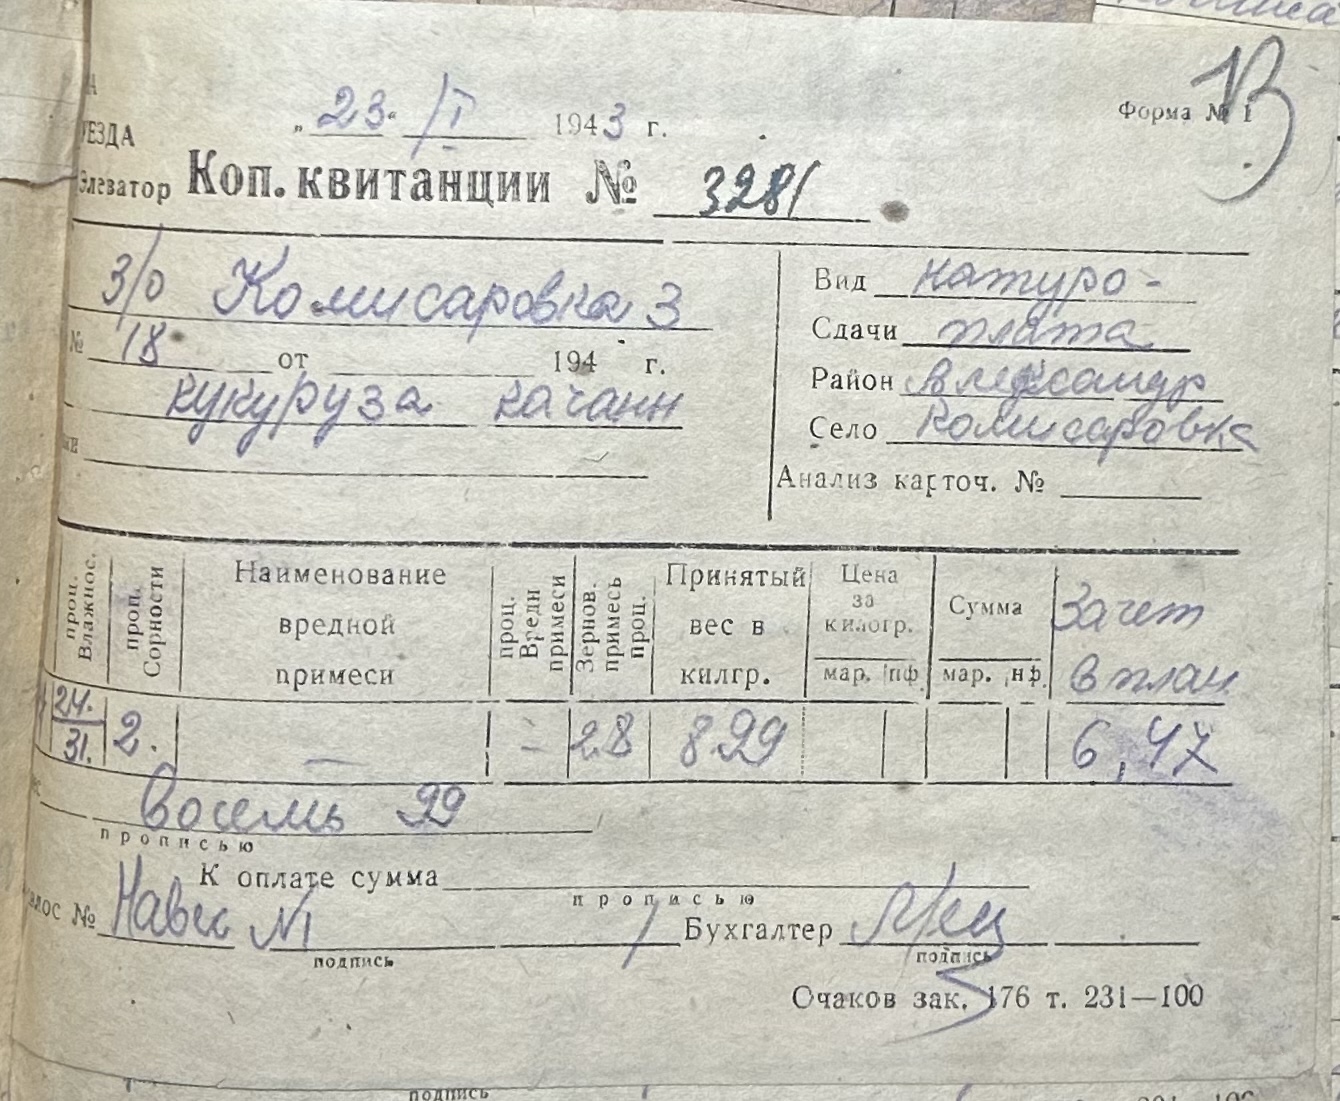 13
А
„ 23 “ /I 1943 г.
Форма № 1
УЕЗДА
Элеватор Коп. квитанции № 3281
З/О Комисаровка 3
№ 18 от 194 г.
кукуруза качани
Вид натуро-
Сдачи плата
Район Александр
Село Комисаровка
Анализ карточ. №
проц. Влажнос.
проц. Сорности
Наименование
вредной
примеси
проц. Вредн примеси
Зернов. примесь проц.
Принятый
вес в
килгр.
Цена
за
килогр.
мар. пф.
Сумма
мар. нф.
Зачет
в план
24.
31. 2. — — 2.8 899 6,47
восемь 99
прописью
К оплате сумма
прописью
№ Навес N1
подпись
Бухгалтер
подпись
Очаков зак. 176 т. 231—100
подпись